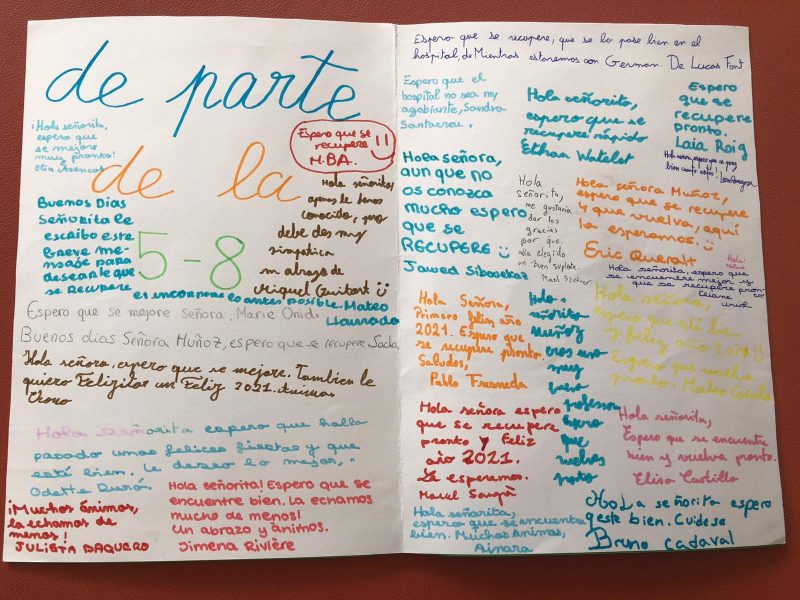 de parte
de la
5-8
¡Hola señorita,
espero que
se mejore
muy pronto!
Elia
Espero que se
recupere
M.BA.
Hola señorita,
apenas le hemos
conocido, pero
debe des muy
simpatica
un abrazo de
Miguel Guitart
Buenos Dias
Señorita le
escribo este
breve me-
nsaje para
desearle que
se recupere
e incorpore lo antes posible. Mateo
Llaurado
Espero que se mejore Señora, Marie Onidi
Buenos dias Señora Muñoz, espero que se recupere, Sacha
Hola señora, espero que se mejore. Tambien le
quiero Felizitar un Feliz 2021.
Hola señorita espero que halla
pasado unas felices fiestas y que
está bien. Le deseo lo mejor,
Odette Durán
¡Muchos ánimos,
la echamos de
menos!
JULIETA BAQUERO
Hola señorita! Espero que se
encuentre bien. La echamos
mucho de menos!
Un abrazo y ánimos.
Jimena Rivière
Espero que se recupere, que se lo pase bien en el
hospital, de Mientras estaremos con German. De Lucas Font
Espero que el
hospital no sea my
agobiante, Sandra
Santacreu.
Hola señorito,
espero que se
recupere rápido
Ethan Watelet
Espero
que se
recupere
pronto.
Laia Roig
Hola señora,
aun que no
os conozca
mucho espero
que se
RECUPERE
Jawed
Hola
señorita,
me gustaria
dar las
gracias
por que
elegido
un buen suplente.
Hola señora Muñoz,
espero que se recupere
y que vuelva, aquí
la esperamos.
Eric Queralt
Hola!
Hola señorita, espero que
se encuentre mejor y
que se recupere pronto!
Hola Señora,
Primero feliz año
2021. Espero que
se recupere pronto.
Saludos,
Pablo
Hola
señorita
muñoz
eres una
muy
buena
profesora
espero
que
vuelvas
pronto
Hola señora,
espero que esté bien
y feliz año 2021
Espero que vuelva
pronto. Mateo
Hola señora espero
que se recupere
pronto y Feliz
año 2021.
La esperamos.
Hola señorita,
Espero que se encuentre
bien y vuelva pronto.
Elisa Castillo
Hola señorita,
espero que se encuentre
bien. Muchos ánimos,
Ainara
HOLA señorita espero
qeste bien. Cuidese
Bruno Cadaval